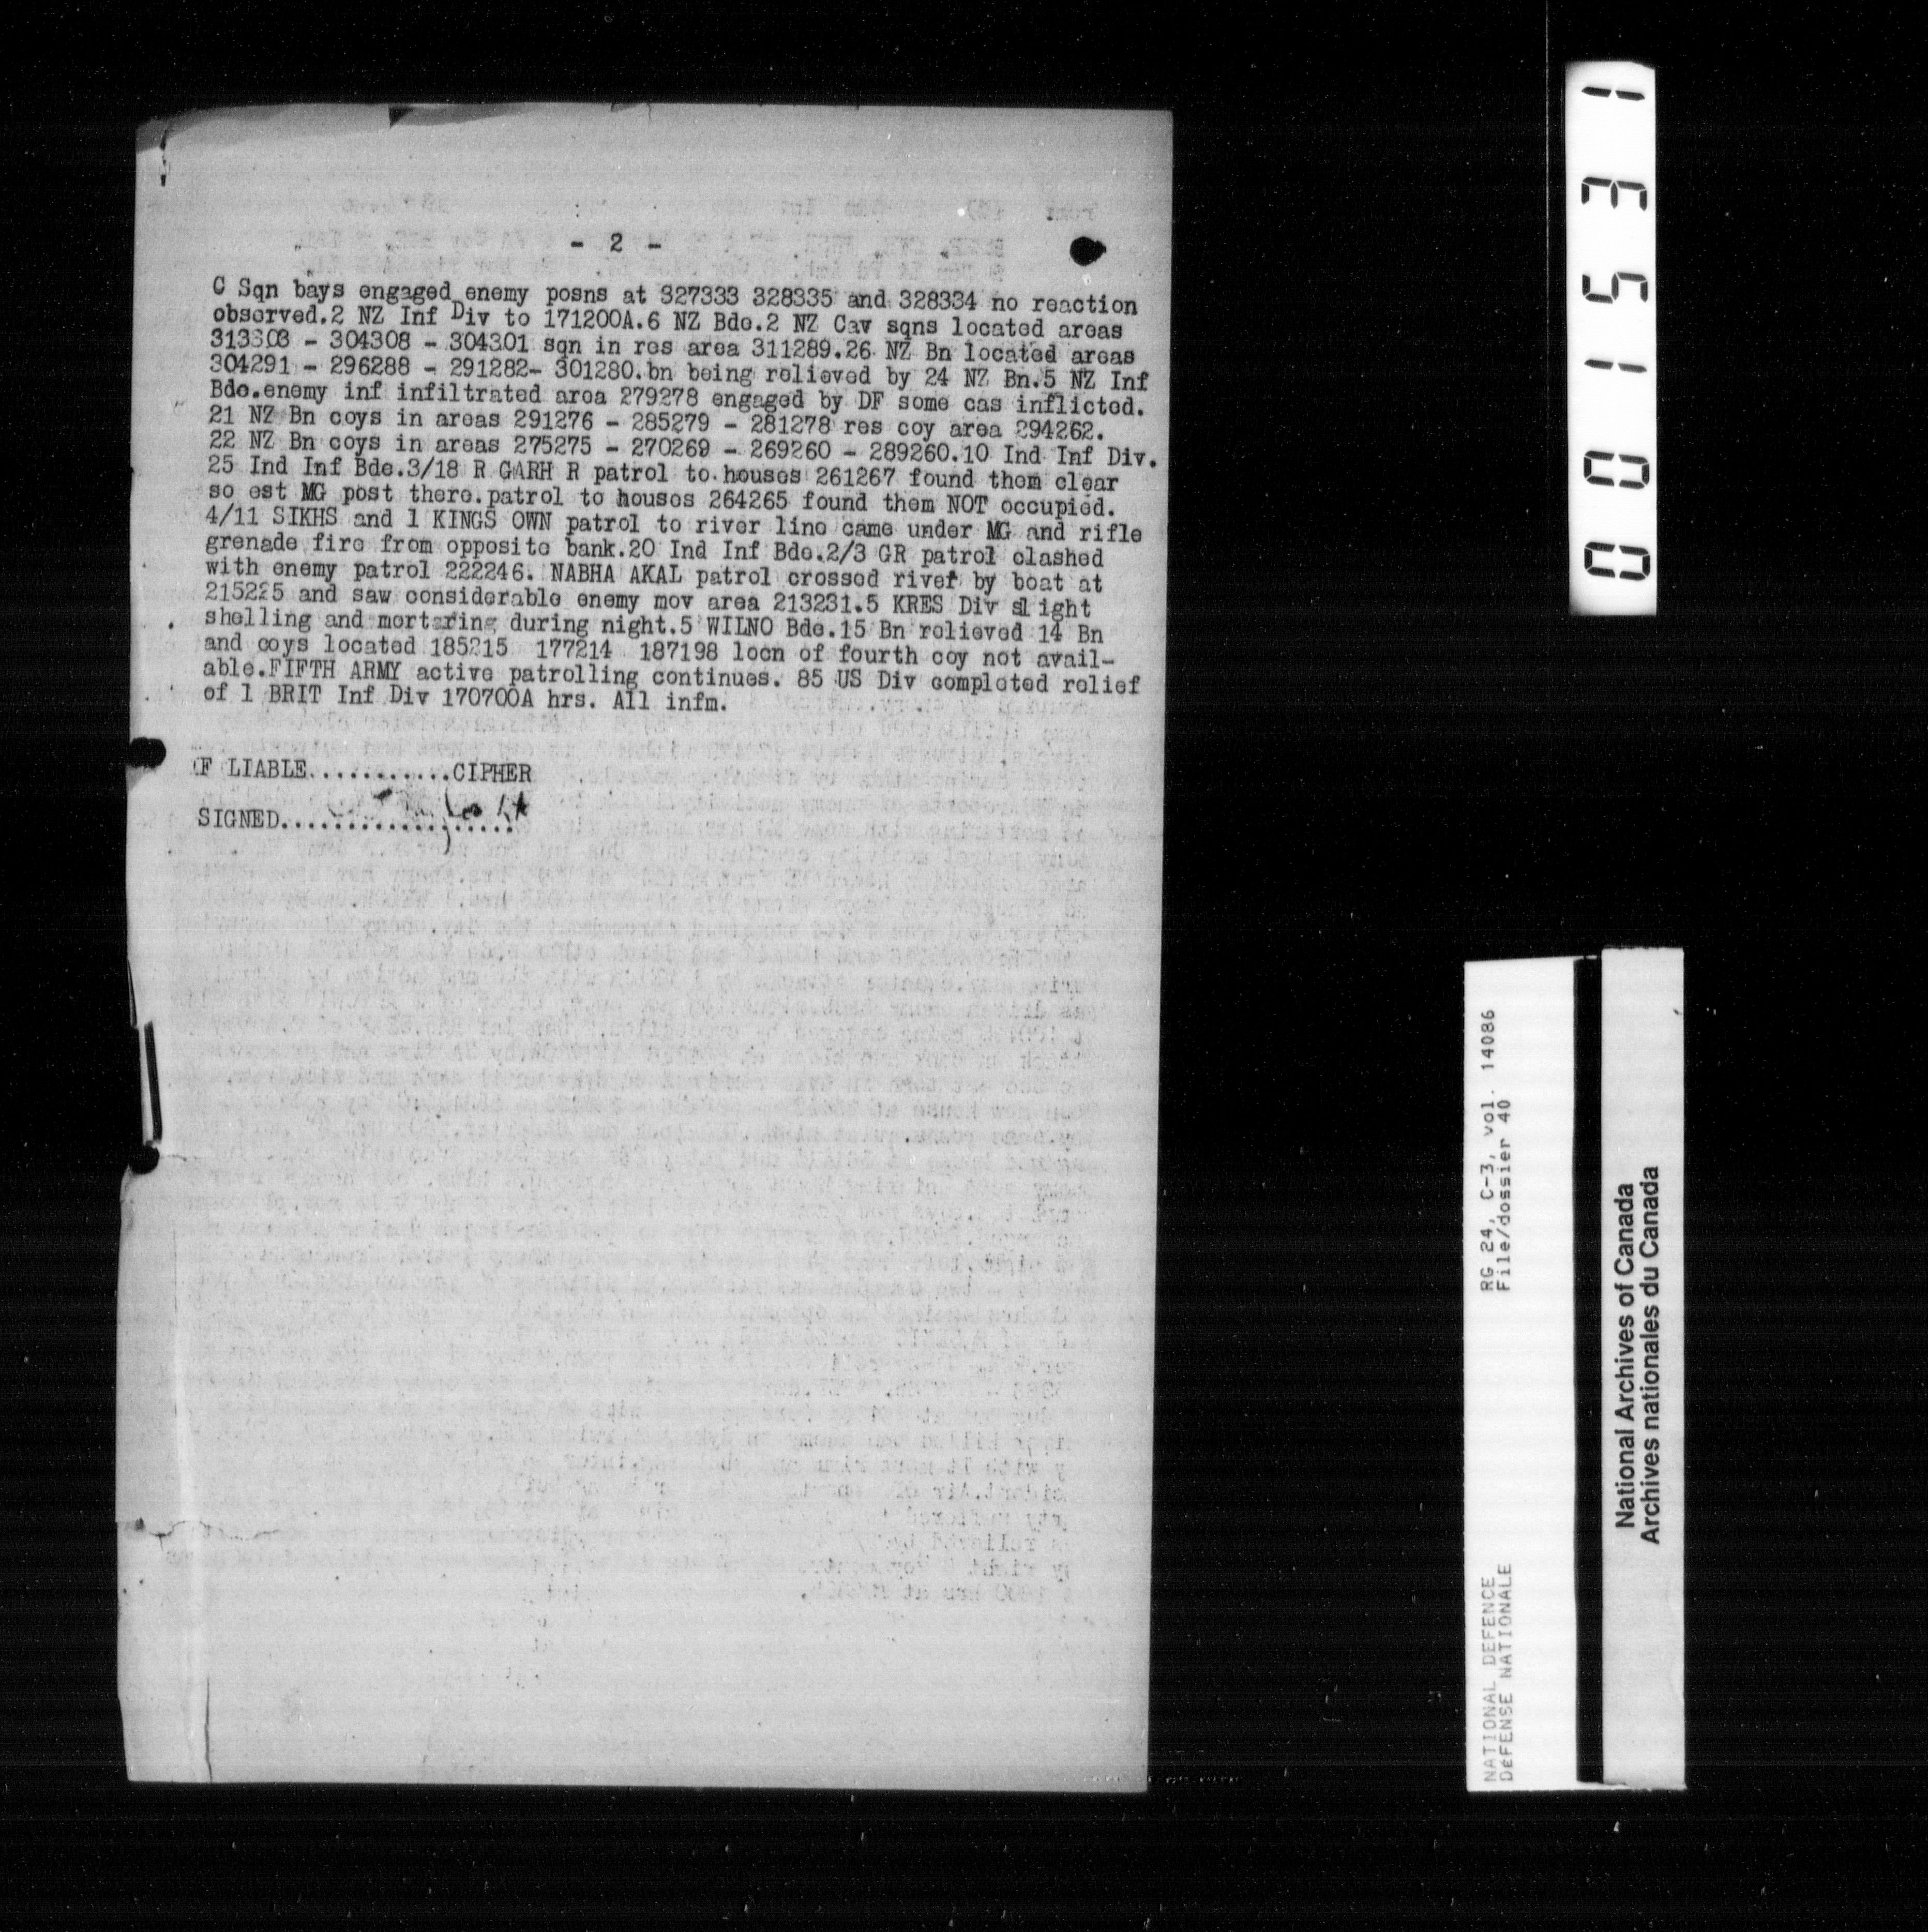 - 2 -
C Sqn bays engaged enemy posns at 327333 328335 and 328334 no reaction
observed.2 NZ Inf Div to 171200A.6 NZ Bde.2 NZ Cav sqns located areas
313303 - 304308 - 304301 sqn in res area 311289.26 NZ Bn located areas
304291 - 296288 - 291282- 301280.bn being relieved by 24 NZ Bn.5 NZ Inf
Bde.enemy inf infiltrated area 279278 engaged by DF some cas inflicted.
21 NZ Bn coys in areas 291276 - 285279 - 281278 res coy area 294262.
22 NZ Bn coys in areas 275275 - 270269 - 269260 - 289260.10 Ind Inf Div.
25 Ind Inf Bde.3/18 R GARH R patrol to houses 261267 found them clear
so est MG post there.patrol to houses 264265 found them NOT occupied.
4/11 SIKHS and 1 KINGS OWN patrol to river line came under MG and rifle
grenade fire from opposite bank.20 Ind Inf Bde.2/3 GR patrol clashed
with enemy patrol 222246. NABHA AKAL patrol crossed river by boat at
215225 and saw considerable enemy mov area 213231.5 KRES Div slight
shelling and mortaring during night.5 WILNO Bde.15 Bn relieved 14 Bn
and coys located 185215 177214 187198 locn of fourth coy not avail-
able.FIFTH ARMY active patrolling continues. 85 US Div completed relief
of 1 BRIT Inf Div 170700A hrs. All infm.
IF LIABLE...........CIPHER
SIGNED...................
001531
RG 24, C-3, vol. 14086
File/dossier 40
NATIONAL DEFENCE
DéFENSE NATIONALE
National Archives of Canada
Archives nationales du Canada